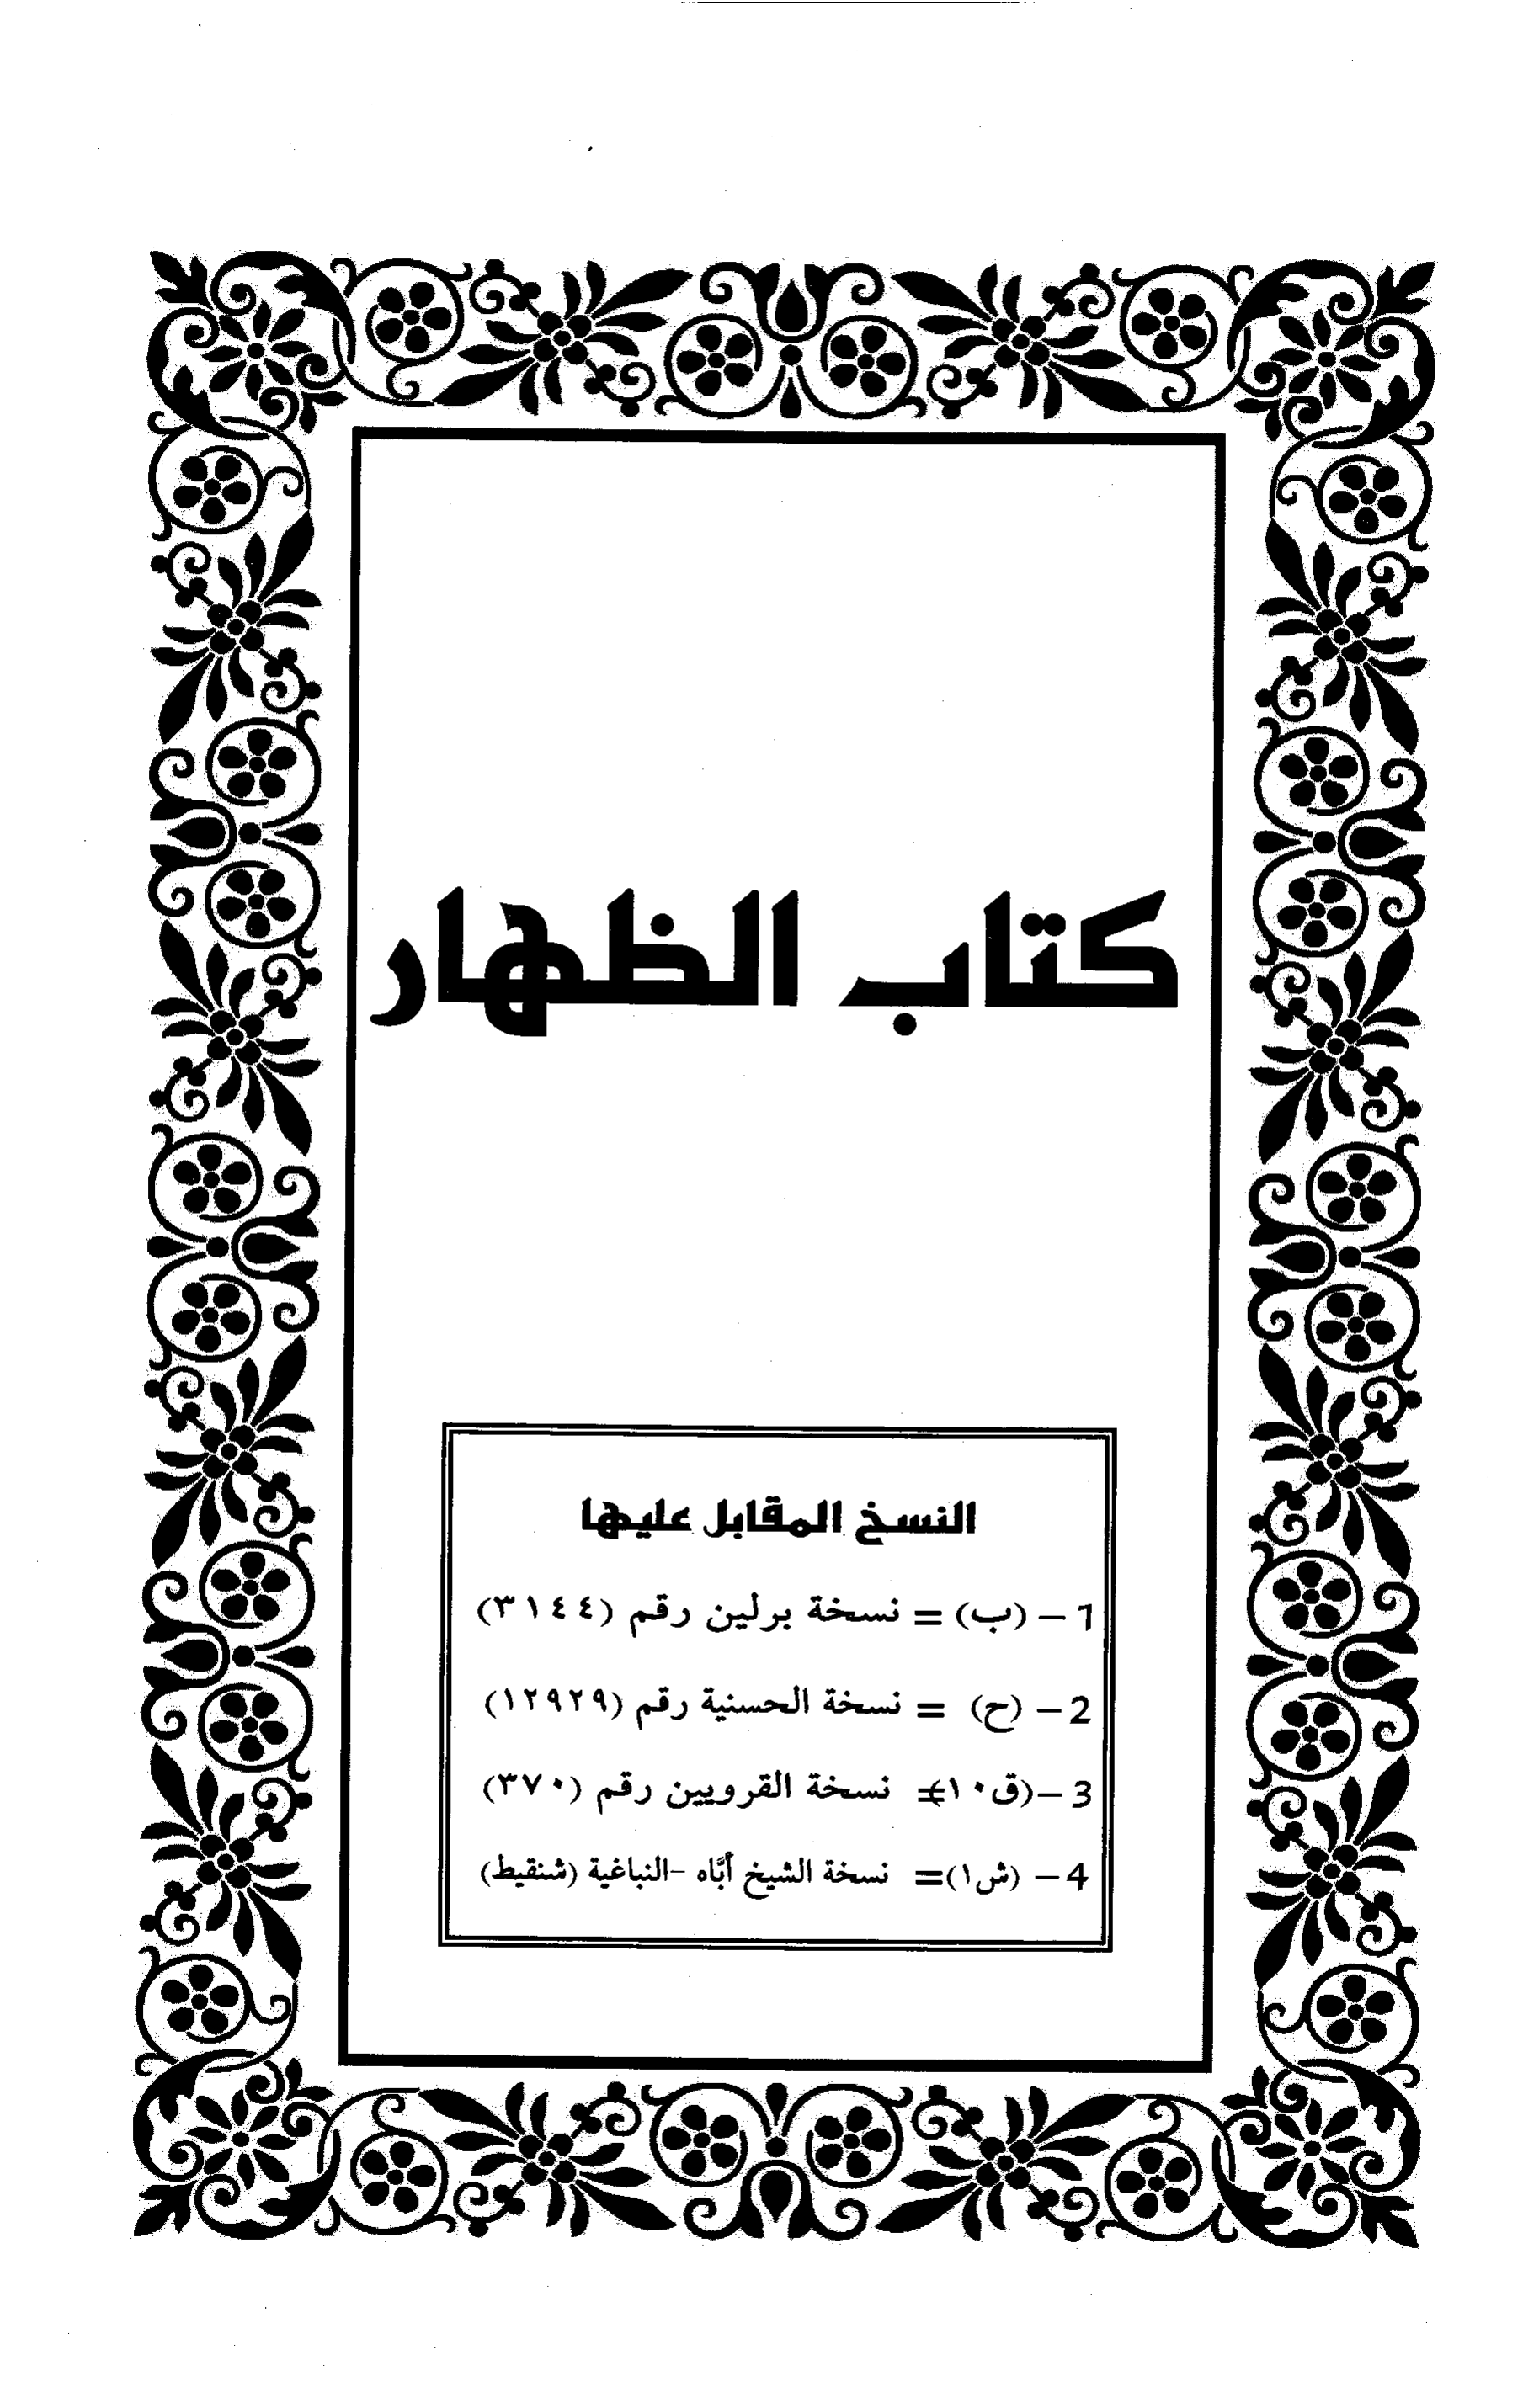 كتاب الظهار
النسخ المقابل عليها
1 – (ب) = نسخة برلين رقم (٣١٤٤)
2 – (ح) = نسخة الحسنية رقم (١٢٩٢٩)
3 –(ق١٠)= نسخة القرويين رقم (٣٧٠)
4 – (ش١)= نسخة الشيخ أبَّاه –النباغية (شنقيط)